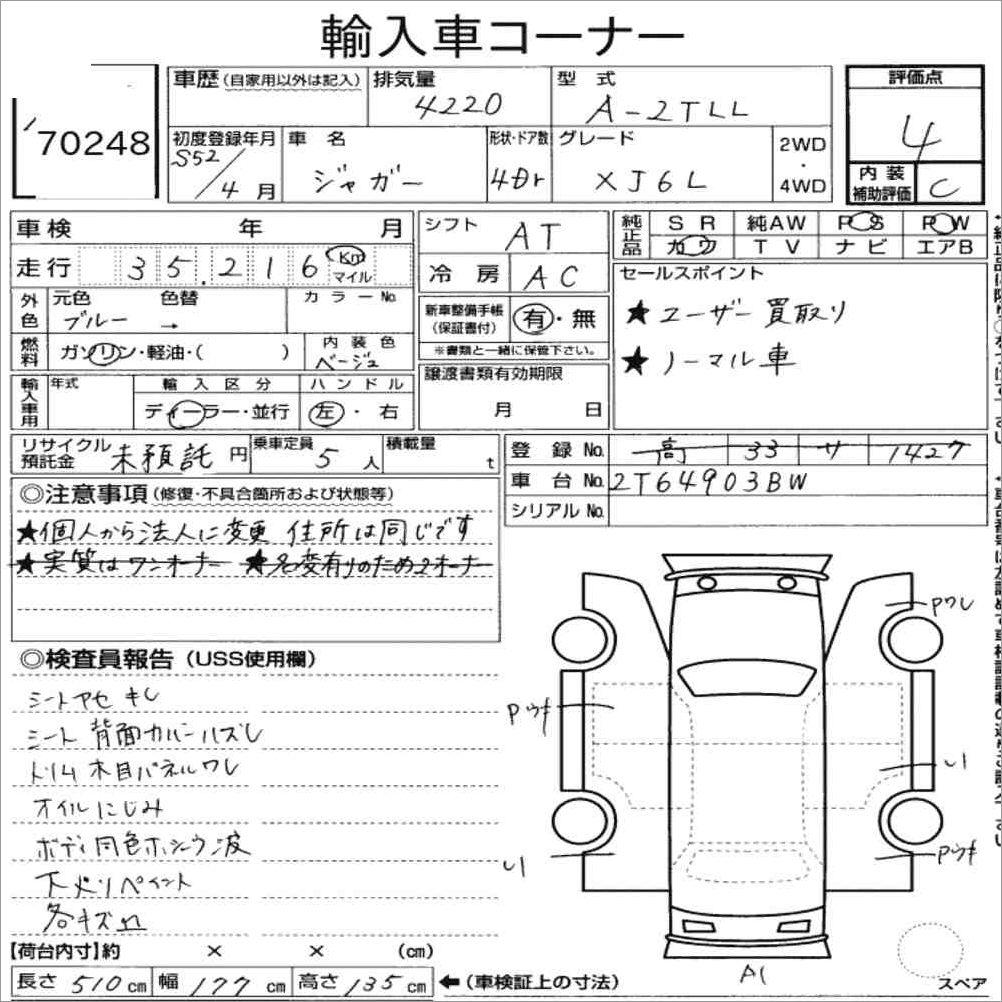 輸入車コーナー
70248
車歴(自家用以外は記入)
排気量 4220
型式 A-2TLL
評価点 4
初度登録年月 S52/4月
車名 ジャガー
形状・ドア数 4Dr
グレード XJ6L
2WD・4WD
内装補助評価 C
車検 年 月
シフト AT
純正品 SR 純AW PS PW
カワ TV ナビ エアB
走行 35,216 Km マイル
冷房 AC
セールスポイント
★ユーザー買取り
★ノーマル車
外色 元色 ブルー → 色替 カラーNo.
新車整備手帳(保証書付) 有・無
※書類と一緒に保管下さい。
燃料 ガソリン・軽油・( ) 内装色 ベージュ
譲渡書類有効期限 月 日
輸入車用 年式 輸入区分 ディーラー・並行 ハンドル 左・右
リサイクル預託金 未預託 円 乗車定員 5人 積載量 t
登録No. 高 33 サ 1427
車台No. 2T64903BW
シリアルNo.
◎注意事項(修復・不具合箇所および状態等)
★個人から法人に変更 住所は同じです
★実質はワンオーナー ★名変有りのため2オーナー
◎検査員報告(USS使用欄)
シートアセ キレ
シート背面カバーハズレ
トリム木目パネルワレ
オイルにじみ
ボディ同色ホシウ波
下火リペイント
各キズ凹
Pワレ
Pウキ
Pウキ
A1
スペア
【荷台内寸】約 × × (cm)
長さ 510cm 幅 177cm 高さ 135cm ←(車検証上の寸法)